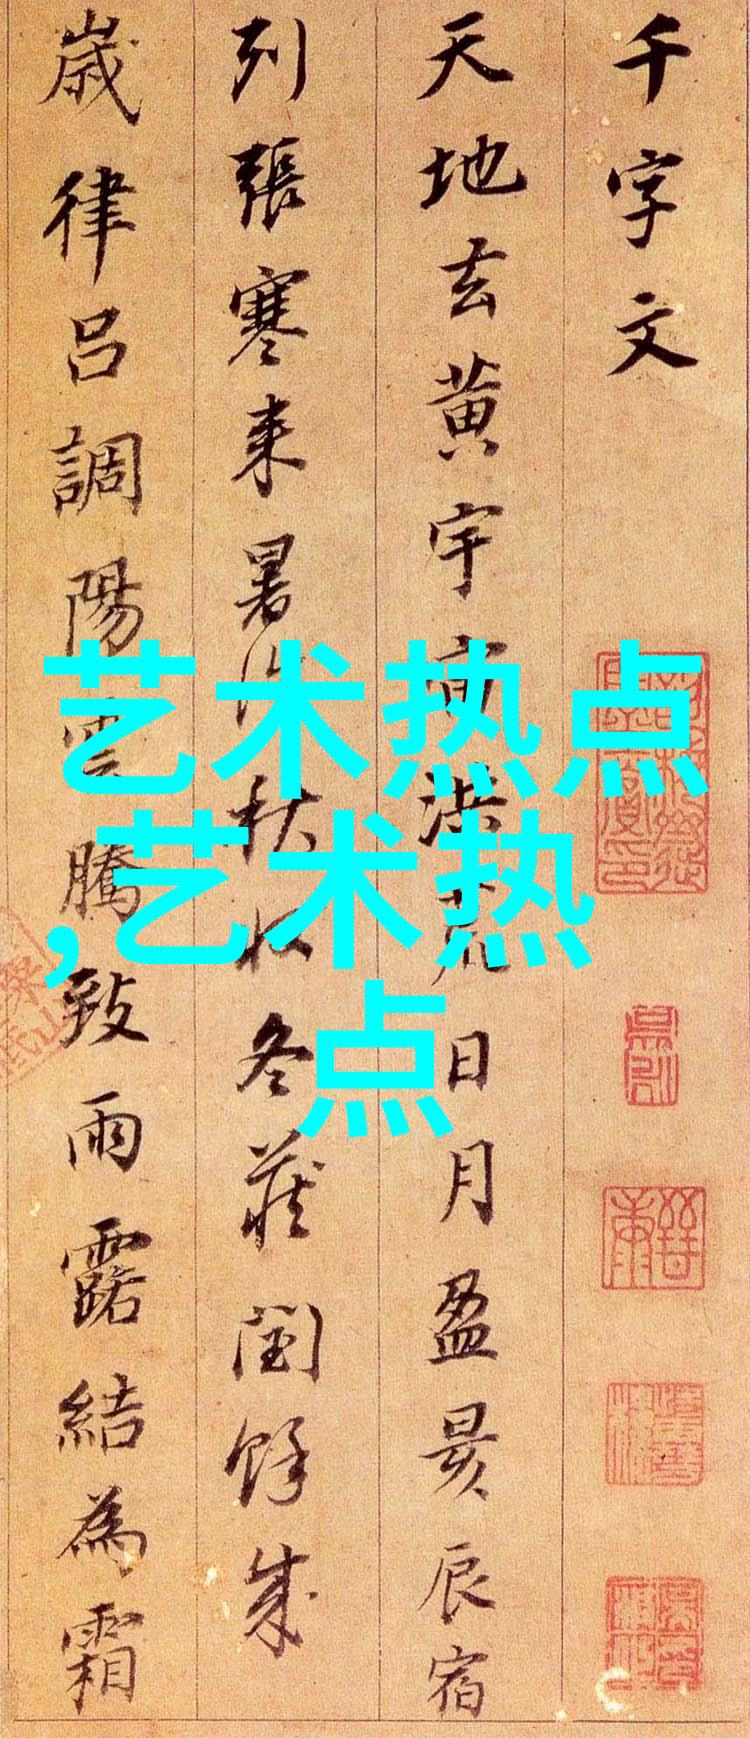 千字文
天地玄黄宇宙洪荒日月盈昃辰宿
列張寒来暑往秋收冬藏閏餘成
歲律呂調陽雲騰致雨露結為霜
艺术热点
,艺术热
点